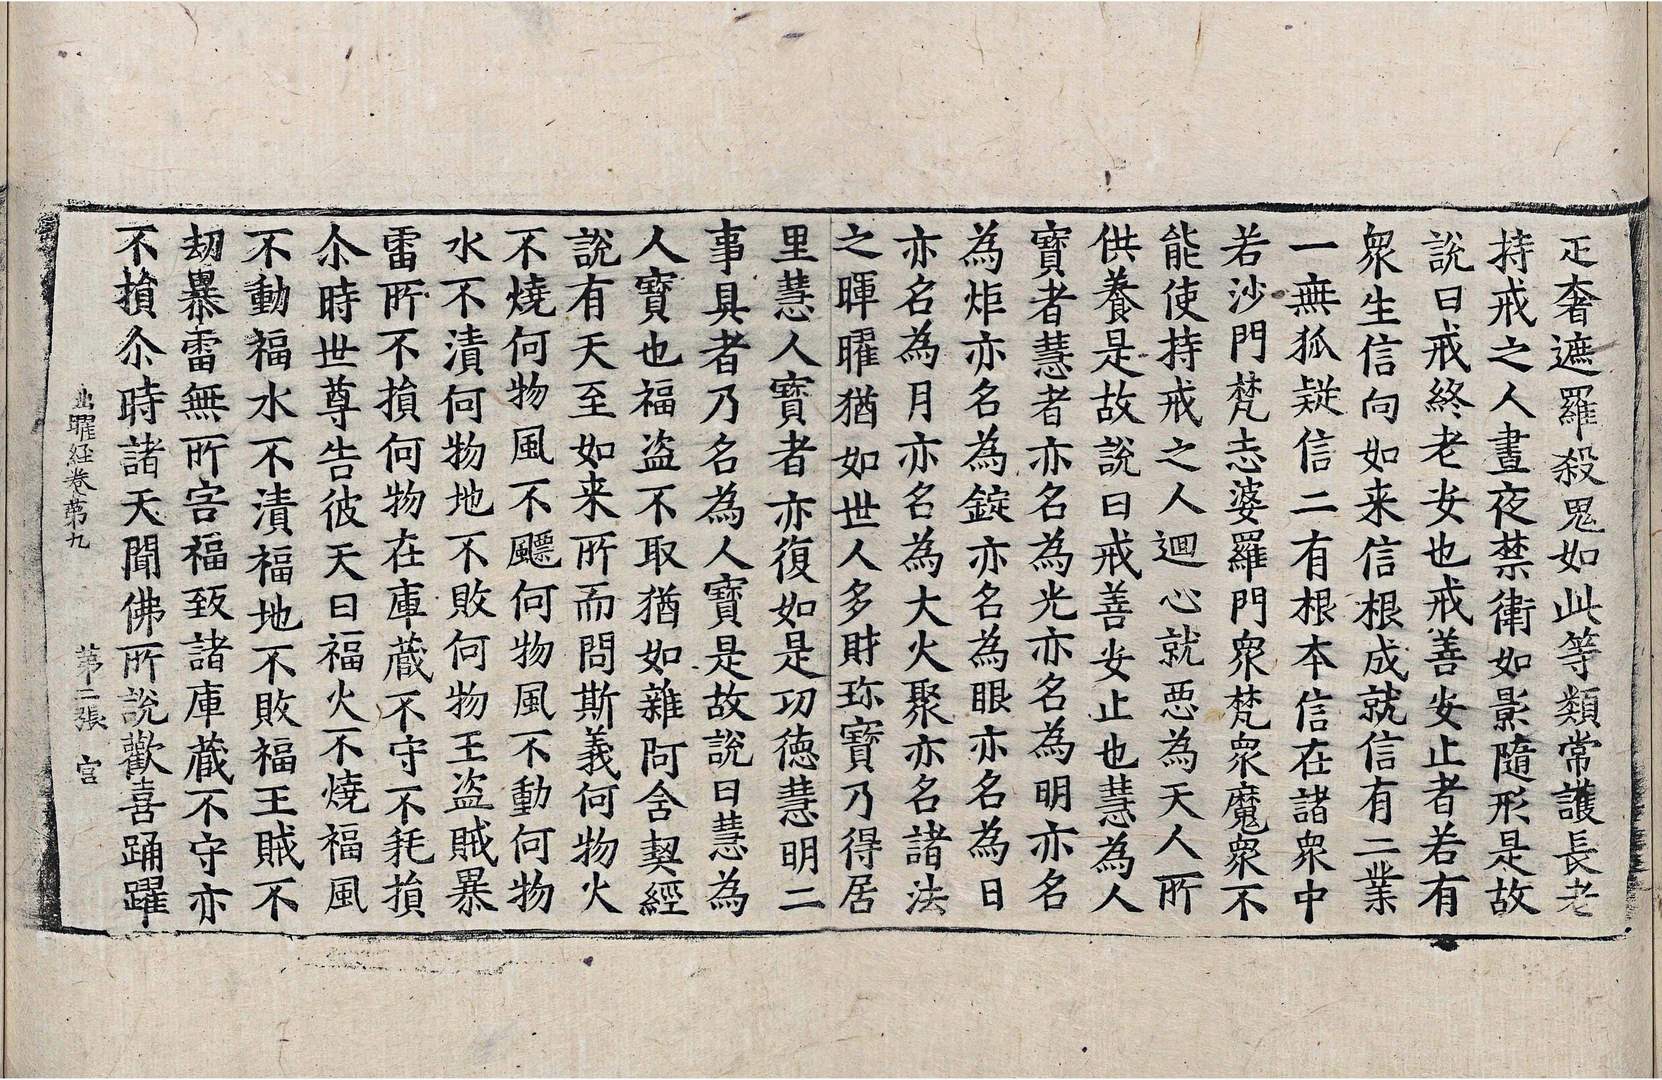 疋奢遮羅殺鬼如此等類常護長老
持戒之人晝夜禁衛如影隨形是故
說曰戒終老安也戒善安止者若有
衆生信向如来信根成就信有二業
一無狐疑信二有根本信在諸衆中
若沙門梵志婆羅門衆梵衆魔衆不
能使持戒之人迴心就惡為天人所
供養是故說曰戒善安止也慧為人
寶者慧者亦名為光亦名為明亦名
為炬亦名為錠亦名為眼亦名為日
亦名為月亦名為大火聚亦名諸法
之暉曜猶如世人多財珎寶乃得居
里慧人寶者亦復如是功徳慧明二
事具者乃名為人寶是故說曰慧為
人寶也福盗不取猶如雜阿含契經
說有天至如来所而問斯義何物火
不燒何物風不飄何物風不動何物
水不漬何物地不敗何物王盗賊暴
雷所不損何物在庫蔵不守不耗損
尒時世尊告彼天曰福火不燒福風
不動福水不漬福地不敗福王賊不
刧暴雷無所害福致諸庫蔵不守亦
不損尒時諸天聞佛所說歡喜踊躍
出曜経卷第九 第二張 宫